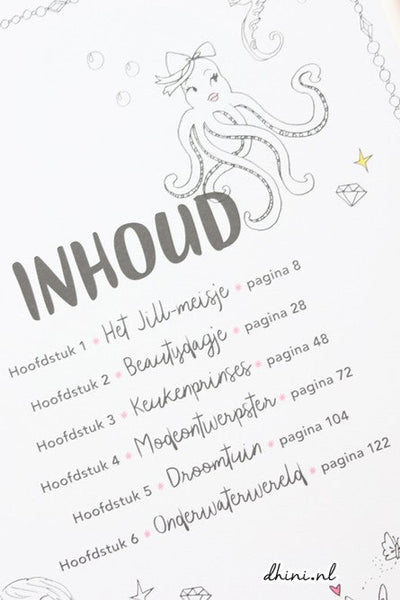 INHOUD
Hoofdstuk 1 * Het Jill-meisje * pagina 8
Hoofdstuk 2 * Beautydagje * pagina 28
Hoofdstuk 3 * Keukenprinses * pagina 48
Hoofdstuk 4 * Modeontwerpster * pagina 72
Hoofdstuk 5 * Droomtuin * pagina 104
Hoofdstuk 6 * Onderwaterwereld * pagina 122
dhini.nl